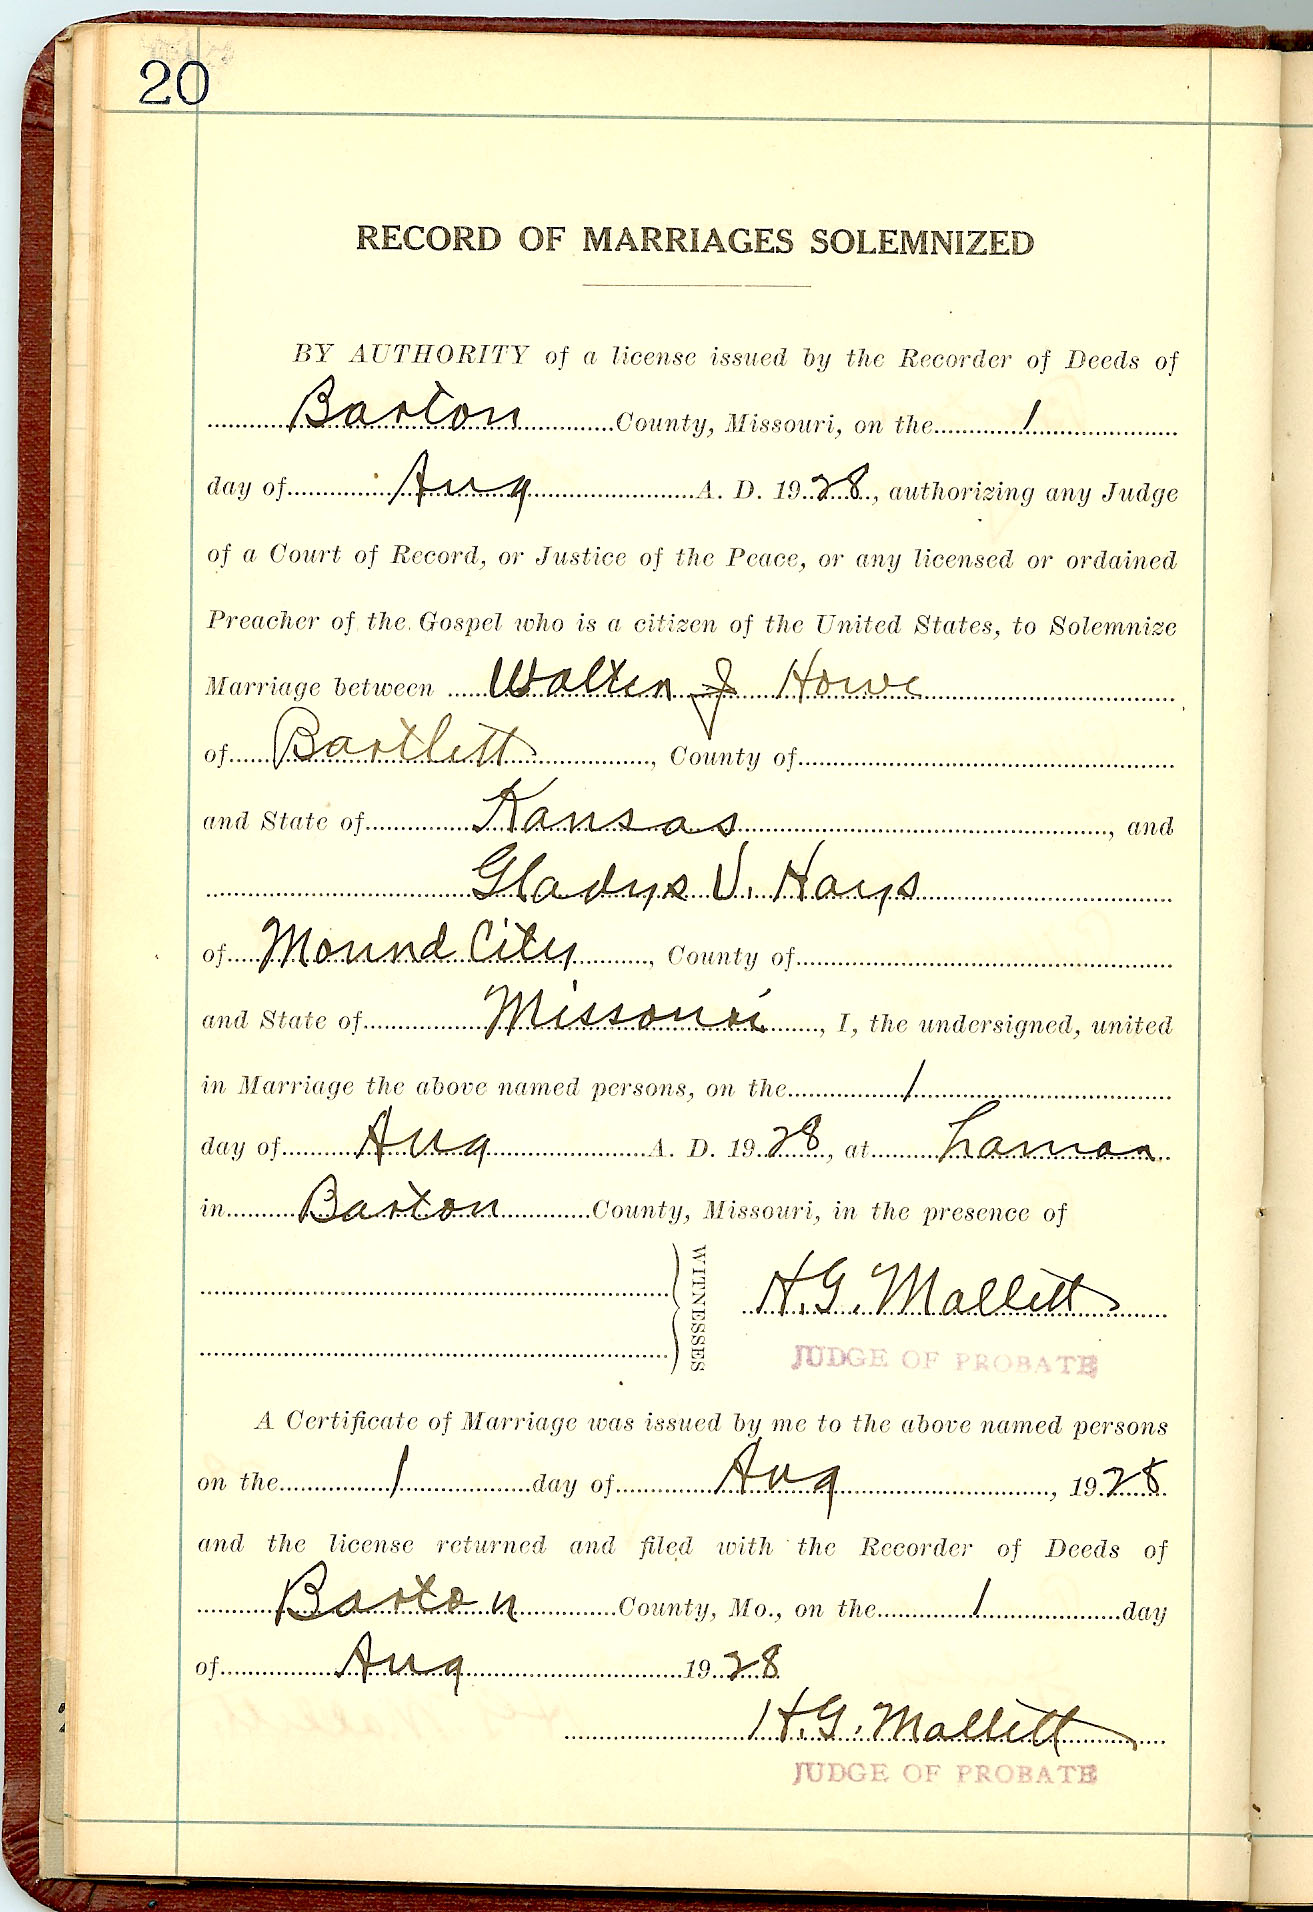 20
RECORD OF MARRIAGES SOLEMNIZED
BY AUTHORITY of a license issued by the Recorder of Deeds of
Barton County, Missouri, on the 1
day of Aug A. D. 1928, authorizing any Judge
of a Court of Record, or Justice of the Peace, or any licensed or ordained
Preacher of the Gospel who is a citizen of the United States, to Solemnize
Marriage between Walter J Howe
of Bartlett, County of
and State of Kansas, and
Gladys V. Hays
of Mound City, County of
and State of Missouri, I, the undersigned, united
in Marriage the above named persons, on the 1
day of Aug A. D. 1928, at Lamar
in Barton County, Missouri, in the presence of
WITNESSES
H.G. Mallett
JUDGE OF PROBATE
A Certificate of Marriage was issued by me to the above named persons
on the 1 day of Aug, 1928
and the license returned and filed with the Recorder of Deeds of
Barton County, Mo., on the 1 day
of Aug 1928
H.G. Mallett
JUDGE OF PROBATE